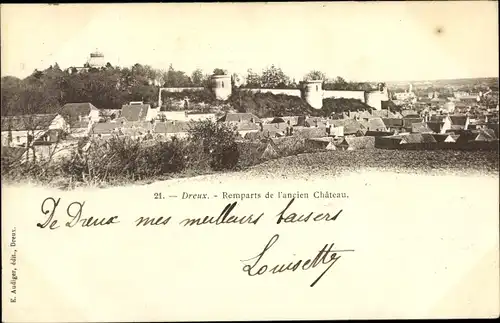 21. — Dreux. - Remparts de l'ancien Château.
De Dreux mes meilleurs baisers
Louisette
E. Audiger, édit., Dreux.